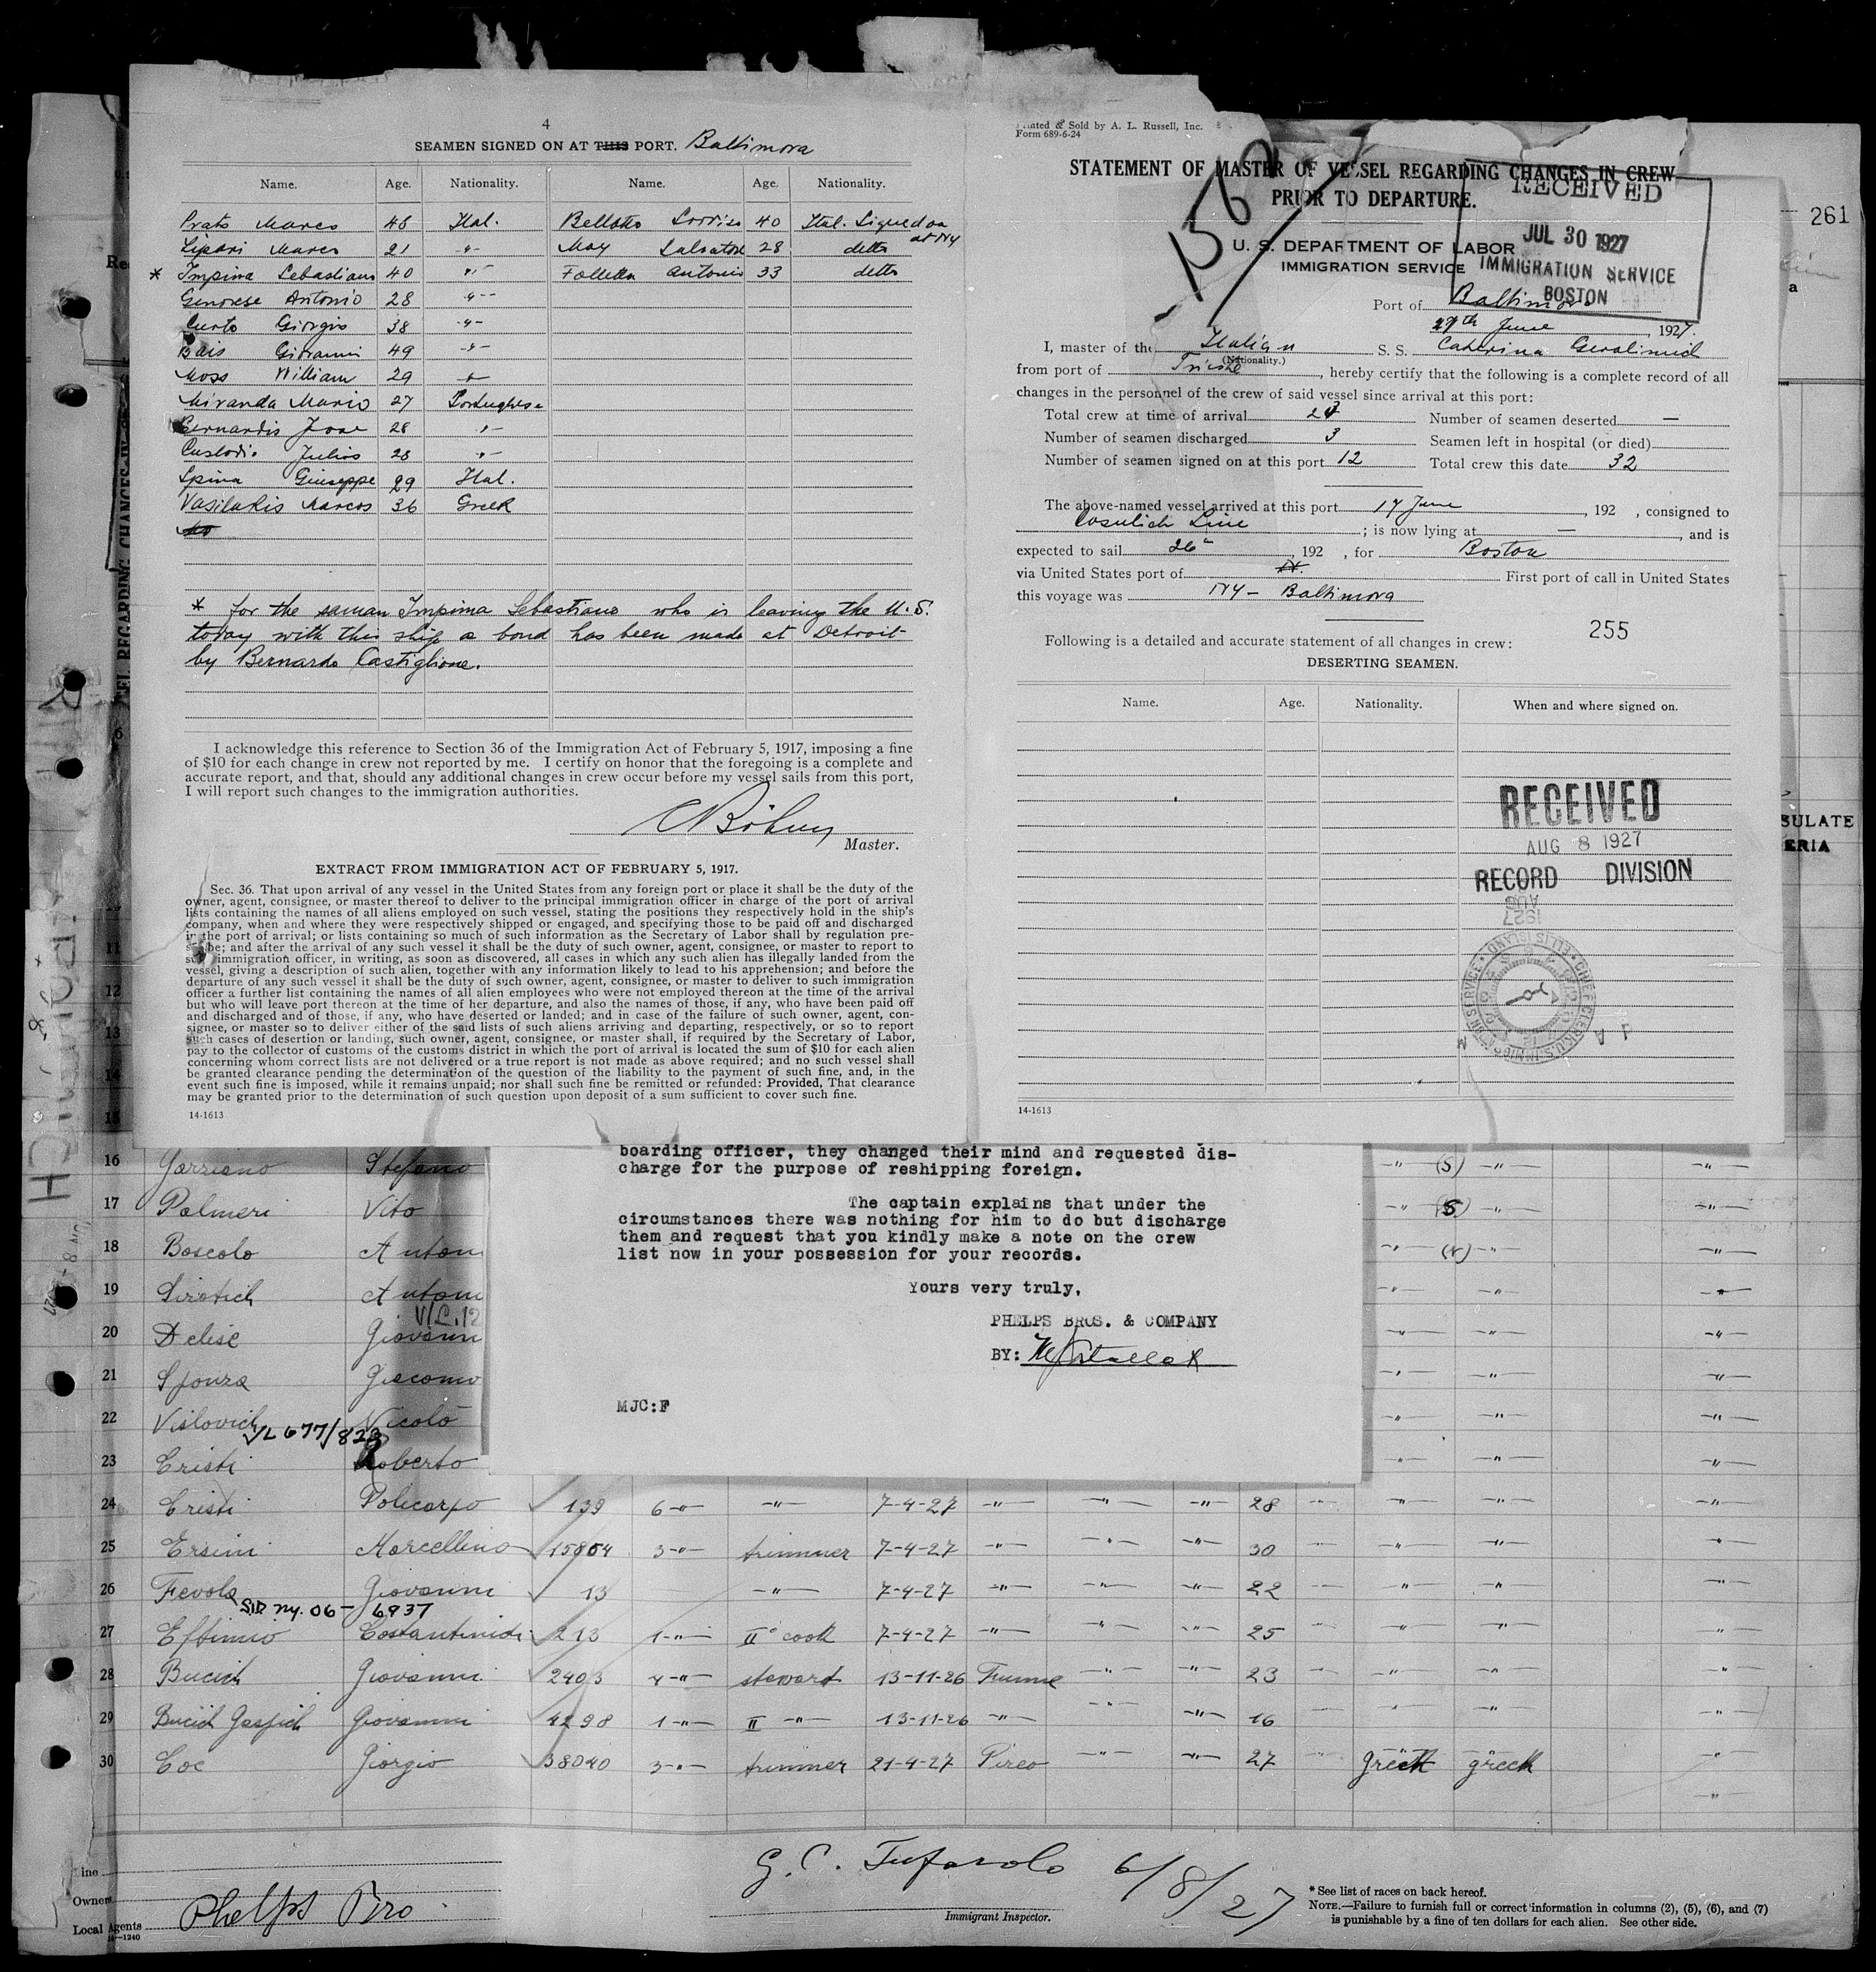 4
SEAMEN SIGNED ON AT THIS PORT. Baltimora
Name. Age. Nationality. Name. Age. Nationality.
Prato Marco 48 Ital. Bellotto 40 Ital. Signed on at NY
Lipari Marco 21 -"- May Salvatore 28 detto
* Impima Sebastiano 40 -"- Falletta Antonio 33 detto
Genovese Antonio 28 -"-
Curto Giorgio 38 -"-
Bais Giovanni 49 -"-
Moss William 29 -"-
Miranda Mario 27 Portughese
Bernardis Jose 28 -"-
Custodio Julios 28 -"-
Spina Giuseppe 29 Ital.
Vasilakis Marcos 36 Greek
* for the saman Impima Sebastiano who is leaving the U.S.
today with this ship a bond has been made at Detroit
by Bernardo Castiglione.
I acknowledge this reference to Section 36 of the Immigration Act of February 5, 1917, imposing a fine
of $10 for each change in crew not reported by me. I certify on honor that the foregoing is a complete and
accurate report, and that, should any additional changes in crew occur before my vessel sails from this port,
I will report such changes to the immigration authorities.
Master.
EXTRACT FROM IMMIGRATION ACT OF FEBRUARY 5, 1917.
Sec. 36. That upon arrival of any vessel in the United States from any foreign port or place it shall be the duty of the
owner, agent, consignee, or master thereof to deliver to the principal immigration officer in charge of the port of arrival
lists containing the names of all aliens employed on such vessel, stating the positions they respectively hold in the ship's
company, when and where they were respectively shipped or engaged, and specifying those to be paid off and discharged
in the port of arrival; or lists containing so much of such information as the Secretary of Labor shall by regulation pre-
scribe; and after the arrival of any such vessel it shall be the duty of such owner, agent, consignee, or master to report to
such immigration officer, in writing, as soon as discovered, all cases in which any such alien has illegally landed from the
vessel, giving a description of such alien, together with any information likely to lead to his apprehension; and before the
departure of any such vessel it shall be the duty of such owner, agent, consignee, or master to deliver to such immigration
officer a further list containing the names of all alien employees who were not employed thereon at the time of the arrival
but who will leave port thereon at the time of her departure, and also the names of those, if any, who have been paid off
and discharged and of those, if any, who have deserted or landed; and in case of the failure of such owner, agent, con-
signee, or master so to deliver either of the said lists of such aliens arriving and departing, respectively, or so to report
such cases of desertion or landing, such owner, agent, consignee, or master shall, if required by the Secretary of Labor,
pay to the collector of customs of the customs district in which the port of arrival is located the sum of $10 for each alien
concerning whom correct lists are not delivered or a true report is not made as above required; and no such vessel shall
be granted clearance pending the determination of the question of the liability to the payment of such fine, and, in the
event such fine is imposed, while it remains unpaid; nor shall such fine be remitted or refunded: Provided, That clearance
may be granted prior to the determination of such question upon deposit of a sum sufficient to cover such fine.
14-1613
Printed & Sold by A. L. Russell, Inc.
Form 689-6-24
STATEMENT OF MASTER OF VESSEL REGARDING CHANGES IN CREW
PRIOR TO DEPARTURE.
RECEIVED
JUL 30 1927
IMMIGRATION SERVICE
BOSTON
261
U. S. DEPARTMENT OF LABOR
IMMIGRATION SERVICE
Port of Baltimore
27th June, 1927.
I, master of the Italian S. S. Caterina Gerolimich
(Nationality.)
from port of Trieste, hereby certify that the following is a complete record of all
changes in the personnel of the crew of said vessel since arrival at this port:
Total crew at time of arrival 23 Number of seamen deserted —
Number of seamen discharged 3 Seamen left in hospital (or died)
Number of seamen signed on at this port 12 Total crew this date 32
The above-named vessel arrived at this port 17 June, 192 , consigned to
Cosulich Line; is now lying at —, and is
expected to sail 26", 192 , for Boston
via United States port of First port of call in United States
this voyage was NY - Baltimora
255
Following is a detailed and accurate statement of all changes in crew:
DESERTING SEAMEN.
Name. Age. Nationality. When and where signed on.
RECEIVED
AUG 8 1927
RECORD DIVISION
SULATE
ERIA
14-1613
boarding officer, they changed their mind and requested dis-
charge for the purpose of reshipping foreign.
The captain explains that under the
circumstances there was nothing for him to do but discharge
them and request that you kindly make a note on the crew
list now in your possession for your records.
Yours very truly,
PHELPS BROS. & COMPANY
BY:
MJC:F
11
12
13
14
15
16 Garziano Stefano -"- (S) -"- -"-
17 Palmeri Vito -"- (S) -"- -"-
18 Boscolo Anton -"- (r) -"- -"-
19 Sirotich Antoni -"- -"- -"-
V/L.12
20 Delise Giovann -"- -"- -"-
21 Sponza Giacomo -"- -"- -"-
22 Vislovich Nicolò -"- -"- -"-
V/L 677/823
23 Cristi Roberto -"- -"- -"-
24 Cristi Policarpo 139 6-"- -"- 7-4-27 -"- -"- -"- 28 -"- -"- -"- -"-
25 Ersini Marcellino 15864 3-"- trimmer 7-4-27 -"- -"- -"- 30 -"- -"- -"- -"-
26 Fevola Giovanni 13 -"- 7-4-27 -"- -"- -"- 22 -"- -"- -"- -"-
S/D ny. 06- 6937
27 Eftimio Costantinidi 213 1-"- II° cook 7-4-27 -"- -"- -"- 25 -"- -"- -"- -"-
28 Bucich Giovanni 2403 4-"- steward 13-11-26 Fiume -"- -"- 23 -"- -"- -"- -"-
29 Bucich Gaspich Giovanni 4298 1-"- II -"- 13-11-26 -"- -"- -"- 16 -"- -"- -"-
30 Coc Giorgio 38040 3-"- trimmer 21-4-27 Pireo -"- -"- 27 -"- greek greek -"-
Line
Owners
Local Agents Phelps Bro.
14-1240
G. C. Tufarolo 6/8/27
Immigrant Inspector.
* See list of races on back hereof.
NOTE.—Failure to furnish full or correct information in columns (2), (5), (6), and (7)
is punishable by a fine of ten dollars for each alien. See other side.